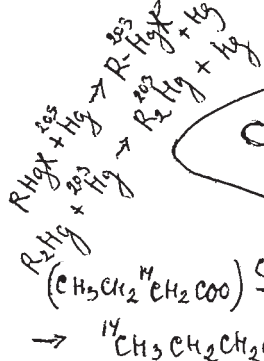 RHgX + ²⁰³Hg → R-²⁰³HgX + Hg
R₂Hg + ²⁰³Hg → R₂²⁰³Hg + Hg
(CH₃CH₂¹⁴CH₂COO)
→ ¹⁴CH₃CH₂CH₂